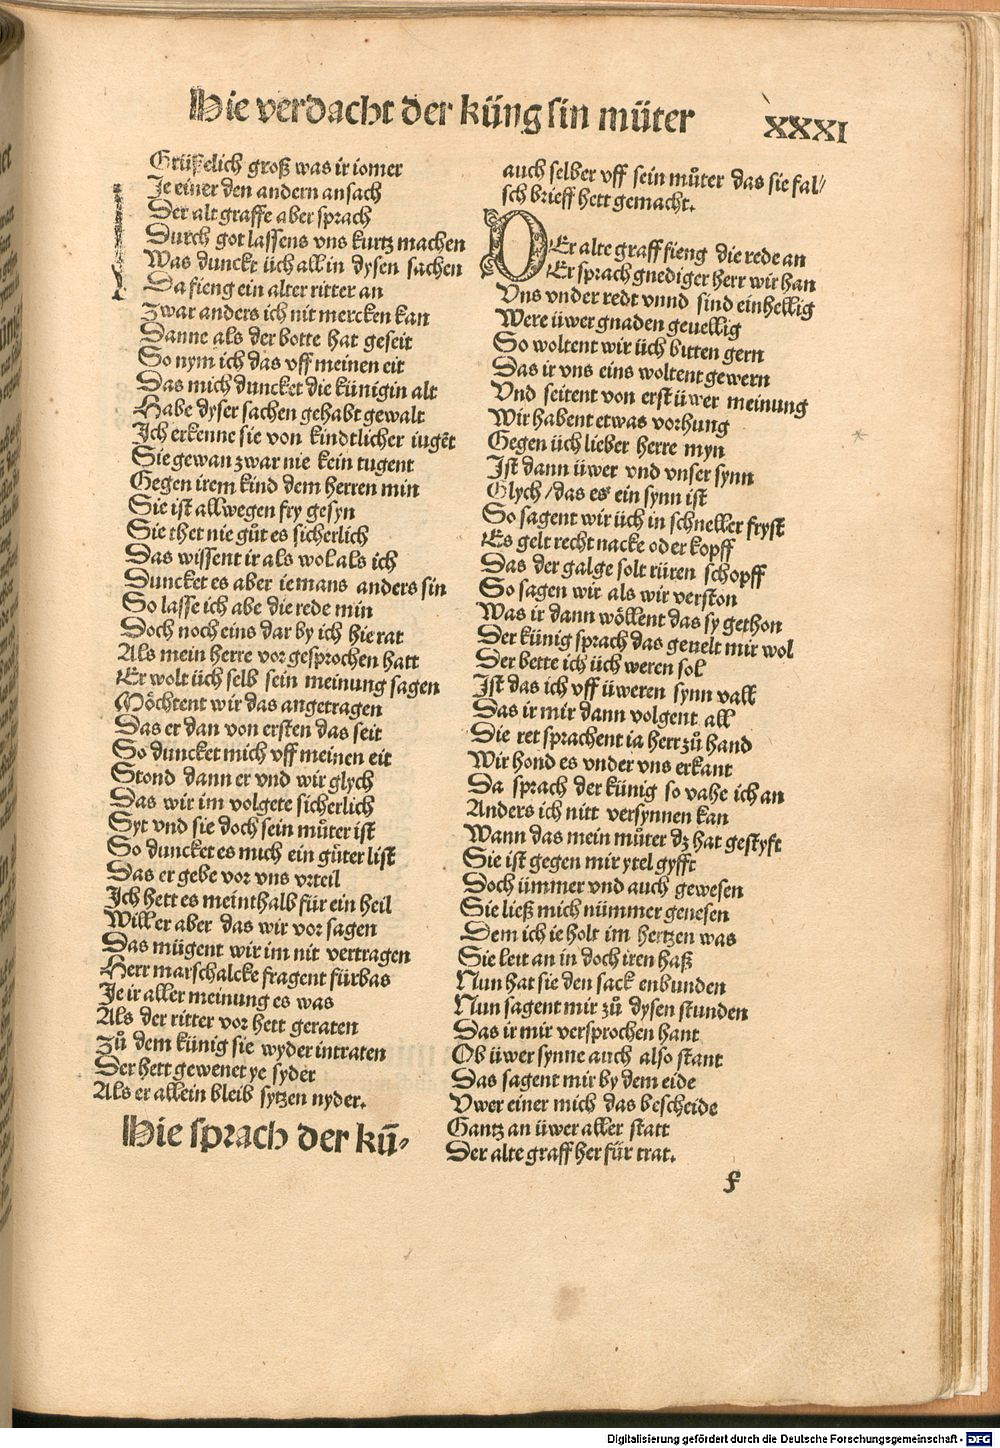 Hie verdacht der küng sin müter
XXXI
Grüßelich groß was ir iomer
Je einer den andern ansach
Der alt graffe aber sprach
Durch got lassens vns kurtz machen
Was dunckt üch all in dysen sachen
Da fieng ein alter ritter an
Zwar anders ich nit mercken kan
Danne als der botte hat geseit
So nym ich das vff meinen eit
Das mich duncket die künigin alt
Habe dyser sachen gehabt gewalt
Ich erkenne sie von kindtlicher iugēt
Sie gewan zwar nie kein tugent
Gegen irem kind dem herren min
Sie ist allwegen fry gesyn
Sie thet nie gůt es sicherlich
Das wissent ir als wol als ich
Duncket es aber iemans anders sin
So lasse ich abe die rede min
Doch noch eins dar by ich hie rat
Als mein herre vor gesprochen hatt
Er wolt üch selb sein meinung sagen
Möchtent wir das angetragen
Das er dan von ersten das seit
So duncket mich vff meinen eit
Stond dann er vnd wir glych
Das wir im volgete sicherlich
Syt vnd sie doch sein můter ist
So duncket es mich ein gůter list
Das er gebe vor vns vrteil
Ich hett es meinthalb für ein heil
Will er aber das wir vor sagen
Das mügent wir im nit vertragen
Herr marschalcke fragent fürbas
Je ir aller meinung es was
Als der ritter vor hett geraten
Zů dem künig sie wyder intraten
Der hett gewenet ye syder
Als er allein bleib sytzen nyder.
Hie sprach der kü-
auch selber vff sein můter das sie fal/
sch brieff hett gemacht.
DEr alte graff fieng die rede an
Er sprach gnediger herr wir han
Vns vnder redt vnnd sind einhellig
Were üwer gnaden geuellig
So woltent wir üch bitten gern
Das ir vns eins woltent gewern
Vnd seitent von erst üwer meinung
Wir habent etwas vorhung
Gegen üch lieber herre myn
Ist dann üwer vnd vnser synn
Glych / das es ein synn ist
So sagent wir üch in schneller fryst
Es gelt recht nacke oder kopff
Das der galge solt rüren schopff
So sagen wir als wir verston
Was ir dann wöllent das sy gethon
Der künig sprach das geuelt mir wol
Der bette ich üch weren sol
Ist das ich vff üweren synn vall
Das ir mir dann volgent all
Die ret sprachent ia herr zů hand
Wir hond es vnder vns erkant
Da sprach der künig so vahe ich an
Anders ich nitt versynnen kan
Wann das mein můter dz hat gestyft
Sie ist gegen mir ytel gyfft
Doch ümmer vnd auch gewesen
Sie ließ mich nümmer genesen
Dem ich ie holt im hertzen was
Sie leit an in doch iren haß
Nun hat sie den sack enbunden
Nun sagent mir zů dysen stunden
Das ir mir versprochen hant
Ob üwer synne auch also stant
Das sagent mir by dem eide
Vwer einer mich das bescheide
Gantz an üwer aller statt
Der alte graff her für trat.
f
Digitalisierung gefördert durch die Deutsche Forschungsgemeinschaft - DFG